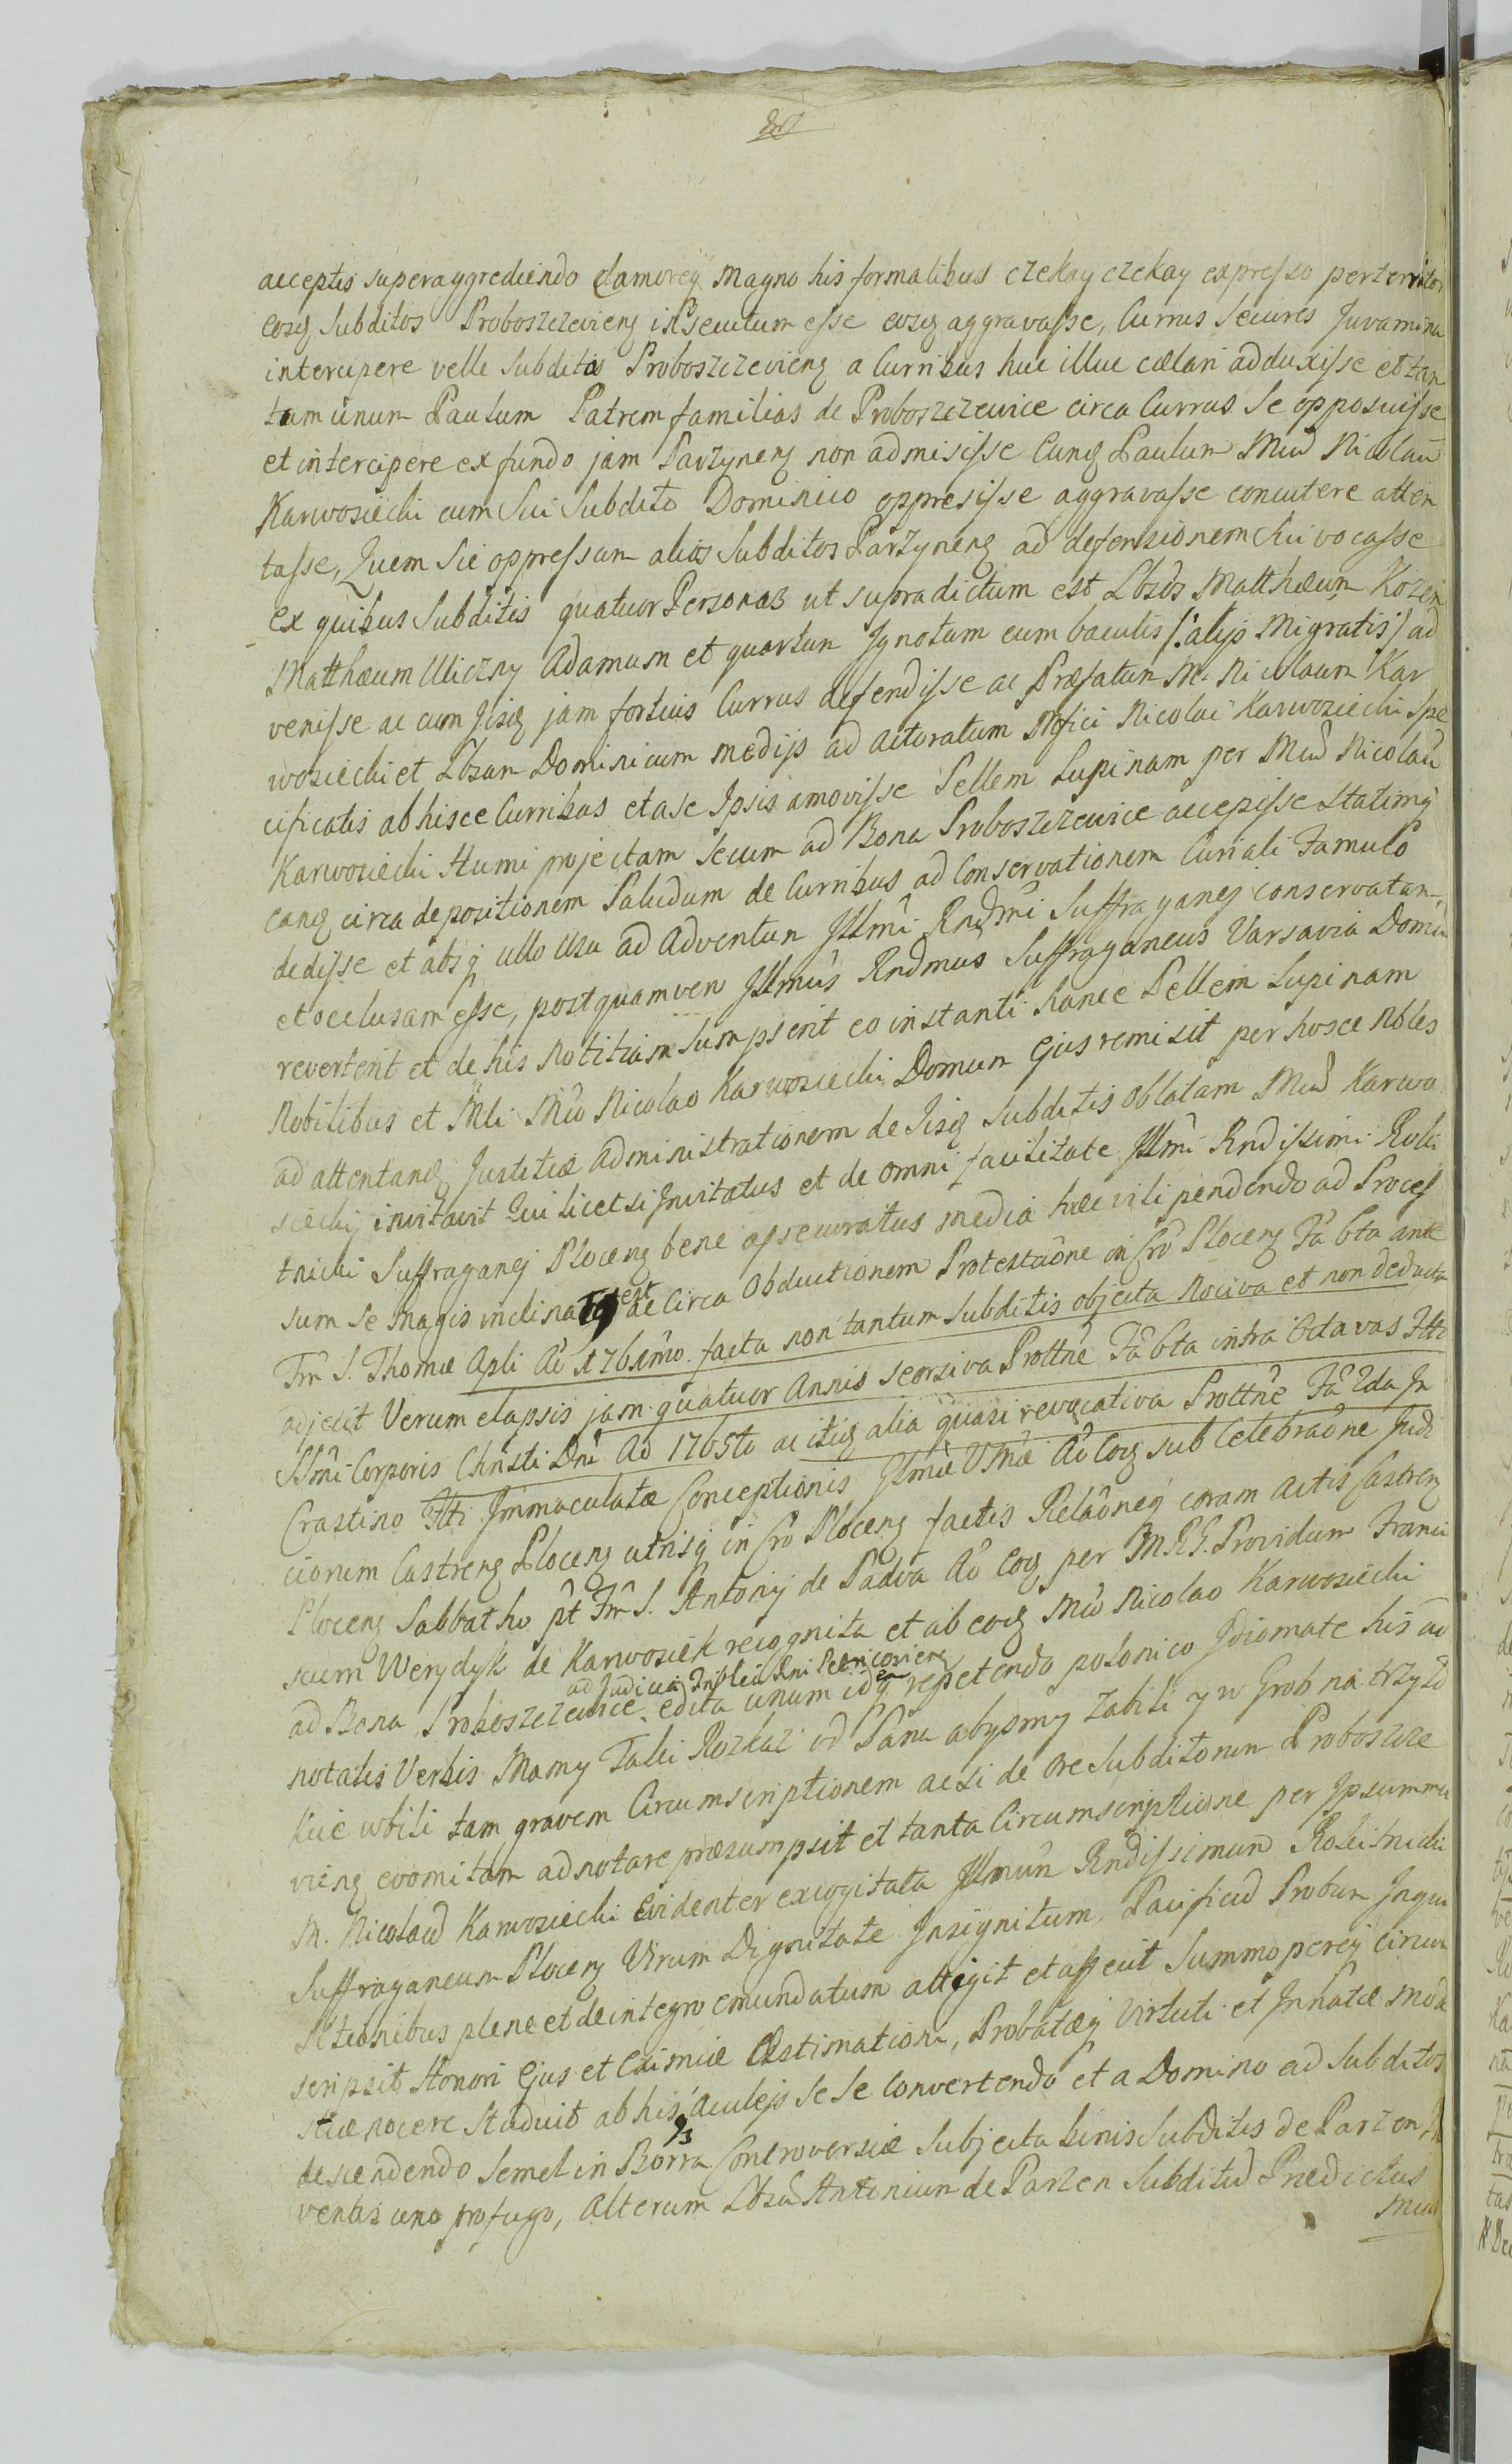 acceptis superaggrediendo Clamoreq magno his formalibus czekay czekay expresso perterritos
eosq Subditos Proboszczevieng insecutum esse eosq aggravasse, Currus Secures Juvamina
intercipere velle Subditos Proboszczevieng a Curribus huc illuc cælari adduxisse et tan
tum unum Paulum Patrem familias de Proboszczewice circa Currus Se opposuisse
et intercipere ex fundo jam Parzyneng non admisisse Cunq Paulum Mud Nicolau
Karwosiecki cum Sui Subdito Dominico oppresisse aggravasse concutere atten
tasse, Quem Sic oppressum alios Subditos Parzyneng ad defensionem Sui vocasse
ex quibus Subditis quatuor Personas ut supradictum est Lbsos Matthæum Kozen
Matthæum Uliczny Adamum et quartum Ignotum cum baculis /: alijs Migratis :/ ad
venisse ac cum Jisq jam fortius Currus defendisse ac Præfatum M. Nicolaum Kar
wosiecki et Lbsum Dominicum medijs ad actoratum Mfici Nicolai Karwosiecki Spe
cificatis ab hisce Curribus et a se Ipsis amovisse Pellem Lupinam per Mud Nicolau
Karwosiecki Humi projectam Secum ad Bona Proboszczewice accepisse Statimq
eanq circa depositionem Paludum de Curribus ad Conservationem Curiali Famulo
dedisse et absq ullo Usu ad Adventum Illmi Rndmi Suffraganej conservatam
et occlusam esse, postquam vero Illmus Rndmus Suffraganeus Varsavia Domum
reverterit et de his Notitiam Sumpserit eo instanti hance Pellem Lupinam
Nobilibus et Mli Mio Nicolao Karwosiecki Domum Ejus remisit per hosce Nobles
ad attentanq Justitiæ Administrationem de Jisq Subditis Oblatam Mud Karwo
siecki invitavit Qui licet si Invitatus et de omni facilitate Illmi Rndissimi Roki
tnicki Suffraganej Ploceng bene assecuratus media hæc vili pendendo ad Proces
sum Se Magis inclinatus est ac Circa Obductionem Protestaone in Cro Ploceng Fa 6ta ante
Frm S. Thomæ Apli Ao 1761mo. facta non tantum Subditis objecta Nociva et non deducta
adjecit Verum elapsis jam quatuor Annis Seorsiva Prottne Fa 6ta intra Octavas Ftti
SSmi Corporis Christi Dni Ao 1765to ac itiq alia quasi revocativa Prottne Fa 2da In
Crastino Ftti Immaculatæ Conceptionis Ao Coq sub Celebraone Judi
ciorum Castreng Ploceng utrisq in Cro Ploceng factis Relaoneq coram Actis Castreng
Ploceng Sabbatho pt Frm S. Antonij de Padva Ao Eoq per M.R.G. Providum Franci
scum Werydyk de Karwosiek recognita et ab eoq Mio Nicolao Karwosiecki
ad Judicia Triblia Rni Petricoviens
ad Bona Proboszczewice edita unum idq repetendo polonico Idiomate his ad
notatis Verbis Mamy Taki Rozkaz od Pana abysmy Zabili y w Grob na trzy Lo
kcie wbili tam gravem Circumscriptionem acsi de ore Subditorum Proboszcze
vieng evomitam adnotare præsumpsit et tanta Circumscriptione per Ipsummu
M. Nicolaud Karwosiecki Evidenter excogitata Illmum Rndissimum Rokitnicki
Suffraganeum Ploceng Virum Dignitate Insignitum, Pacificud Probum Inqui
sitionibus plene et de integro emundatum attigit et affecit Summo pereq circum
scripsit Honori Ejus et Eximiæ Æstimationi, Probatæq Virtuti et Innatæ mode
stiæ nocere Studuit ab his Aculejs Se Se Convertendo et a Domino ad Subditos
descendendo Semel in Borra Controversiæ Subjecta binis Subditis de Parzen
ventis uno profugo, Alterum Lbsu Antonium de Parzen Subditud Prædictus
Mud